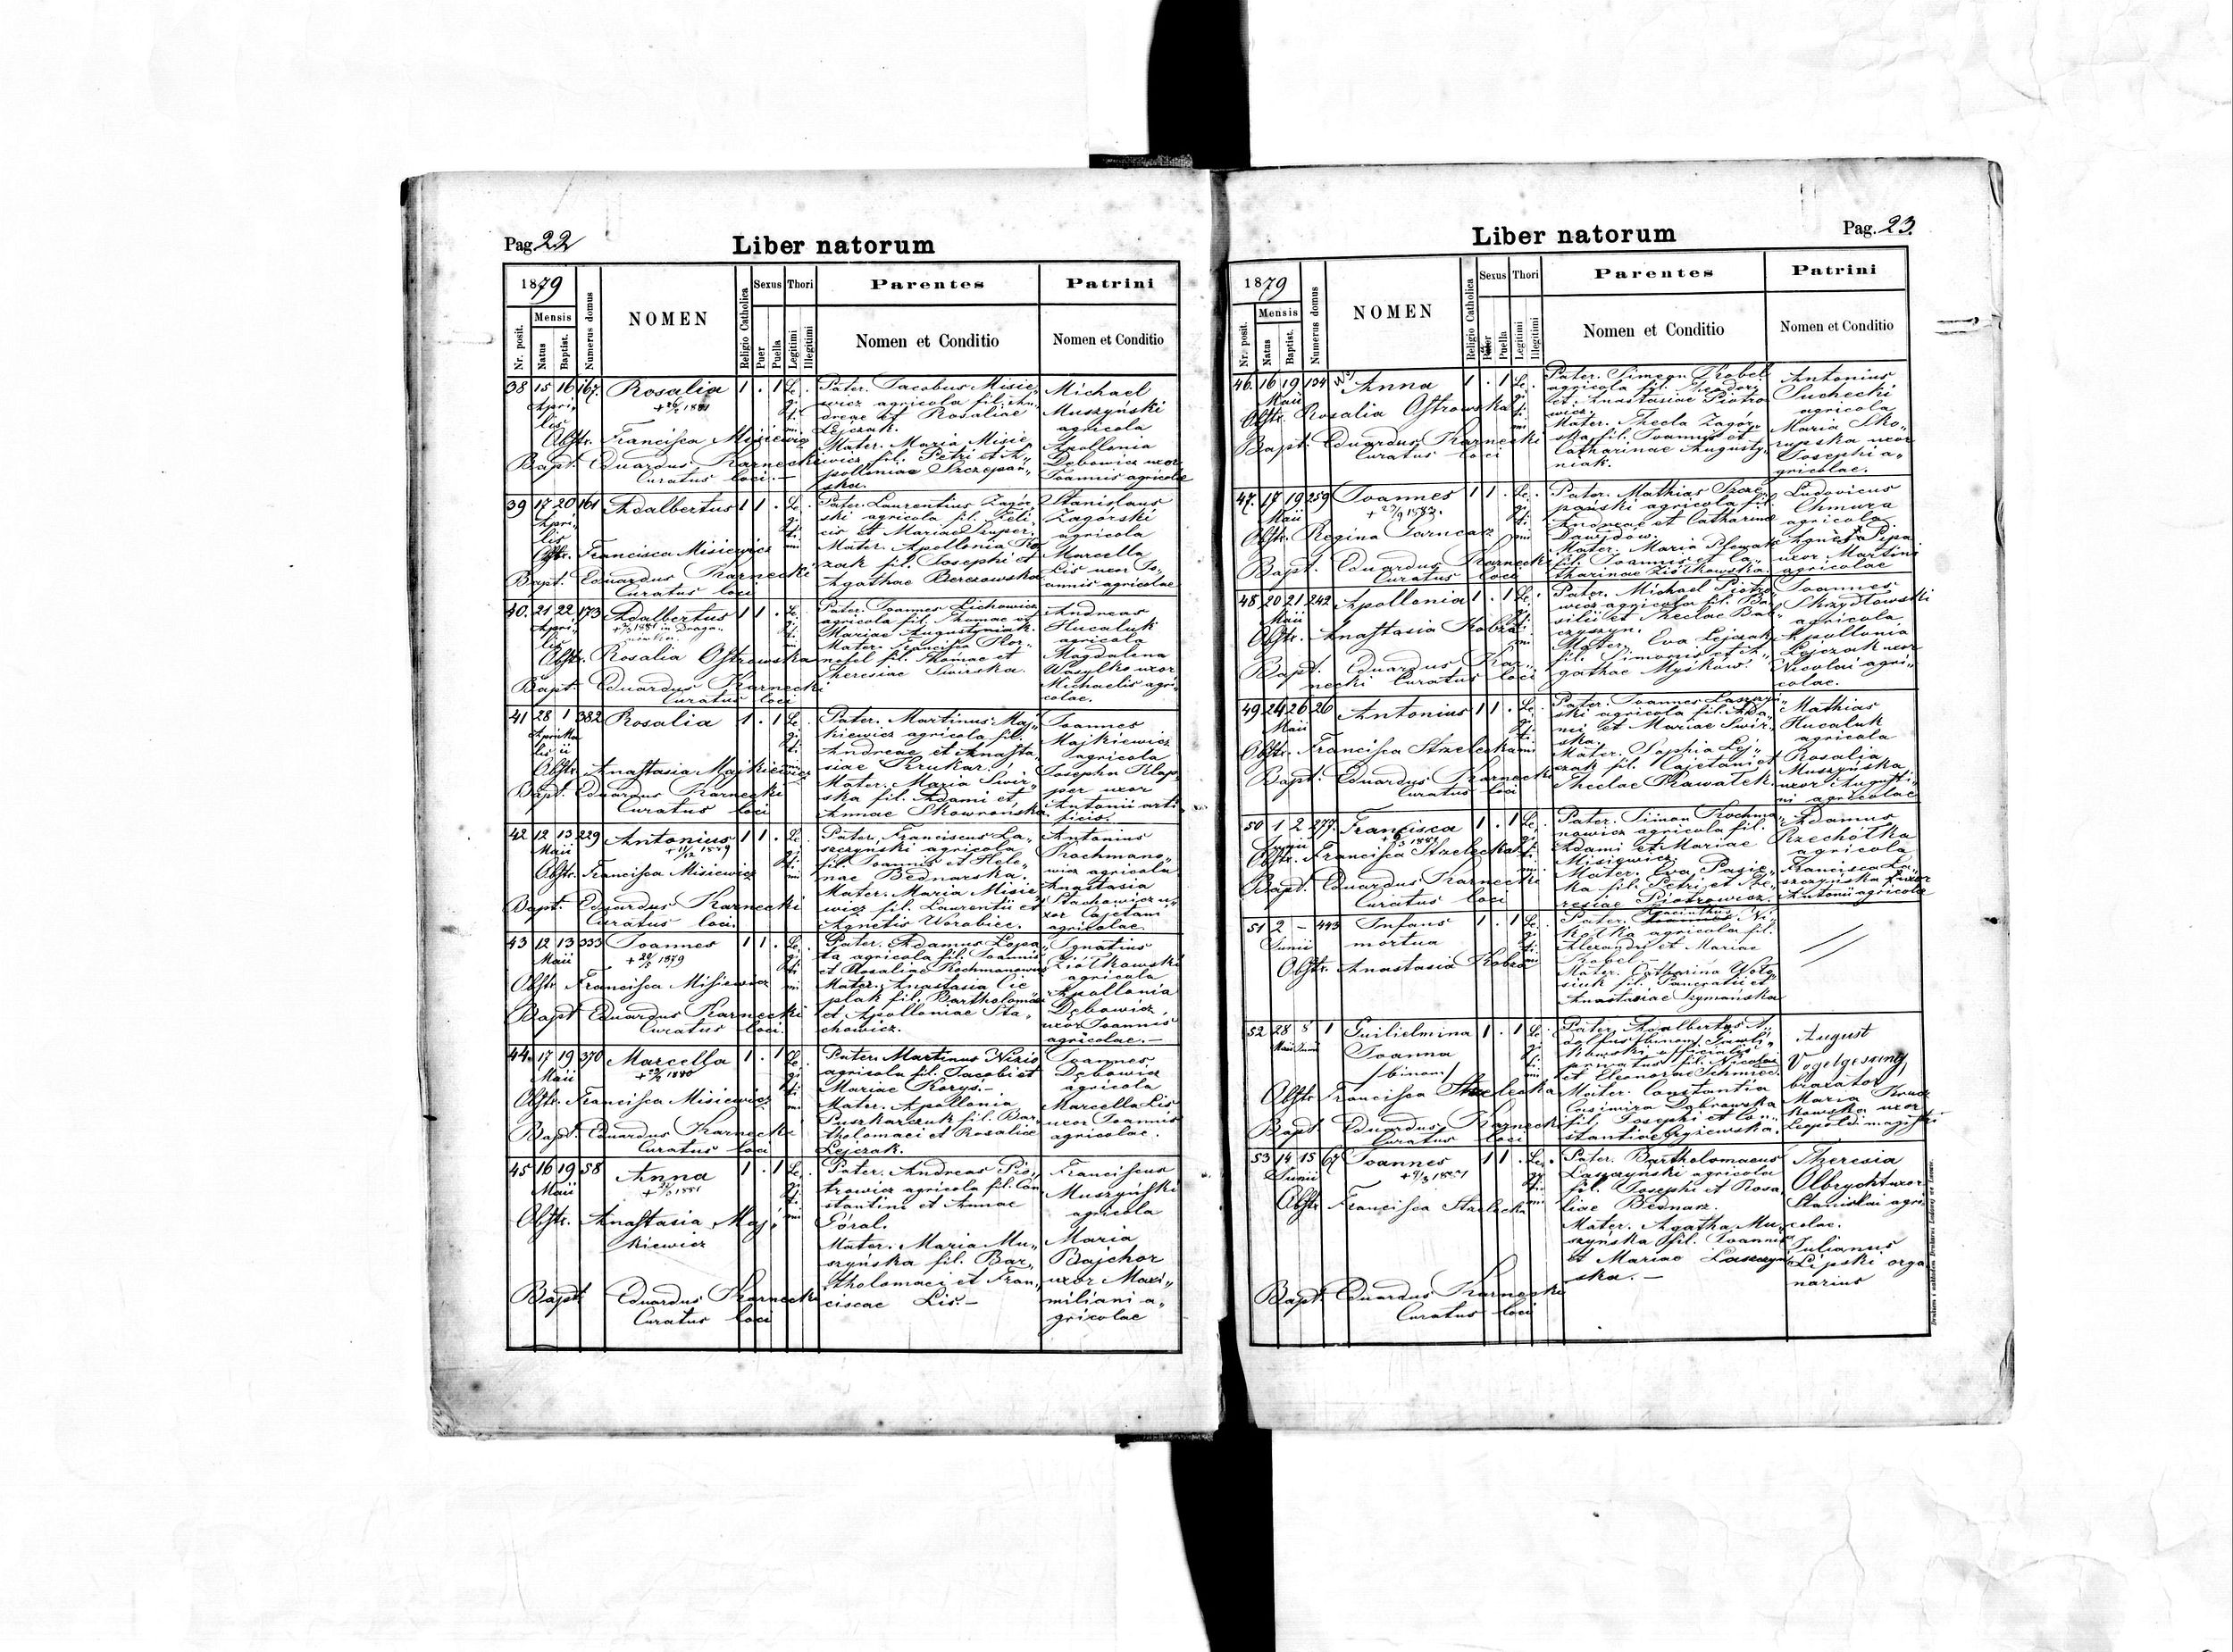 Pag. 22
Liber natorum
1879
Mensis
Nr. posit.
Natus
Baptist.
Numerus domus
NOMEN
Religio Catholica
Sexus
Puer
Puella
Thori
Legitimi
Illegitimi
Parentes
Nomen et Conditio
Patrini
Nomen et Conditio
38 15 16 167. Rosalia 1 . 1 Le .
Aprilis
gi
ti
mi
Obstr. Francisca Misiewicz
Bapt. Eduardus Karnecki
Curatus loci.—
Pater. Jacobus Misie„
wicz agricola fil. An„
dreae et Rosaliae
Lejczak.
Mater. Maria Misie
wicz fil. Petri et A„
polloniae Szczepań„
ska.
Michael
Muszyński
agricola
Apollonia
Dębowicz uxor
Joannis agricolae
39 17 20 161 Adalbertus 1 1 . Le .
Aprilis
Obstr. Francisca Misiewicz
Bapt. Eduardus Karnecki
Curatus loci
Pater. Laurentius Zagór„
ski agricola fil. Feli„
cis et Mariae Kuper.
Mater. Apollonia Ko
zak fil. Josephi et
Agathae Berezowska
Stanislaus
Zagórski
agricola
Marcella
Lis uxor Jo„
annis agricolae
40. 21 22 173 Adalbertus 1 1 .
Aprilis
Obstr. Rosalia Ostrowska
Bapt. Eduardus Karnecki
Curatus loci
Pater. Joannes Lichowicz
agricola fil. Thomae et
Mariae Augustyniak.
Mater. Francisca Hor„
nosel fil. Thomae et
Theresiae Swirska.
Andreas
Hucaluk
agricola
Magdalena
Wasylko uxor
Michaelis agri
colae.
41 28 1 382 Rosalia 1 . 1 Le .
Aprilis Maii
Obstr. Anastasia Majkiewicz
Bapt. Eduardus Karnecki
Curatus loci
Pater. Martinus Maj„
kiewicz agricola fil.
Andreae et Anasta„
siae Krukar.
Mater. Maria Swir„
ska fil. Adami et
Annae Skowrońska.
Joannes
Majkiewicz
agricola
Josepha Klap
per uxor
Antonii arti
ficis.
42 12 13 229 Antonius 1 1 . Le .
Maii
+ 11/12 1879
Obstr. Francisca Misiewicz
Bapt. Eduardus Karnecki
Curatus loci.
Pater. Franciscus La„
szczyński agricola
fil. Joannis et Hele„
nae Bednarska.
Mater. Maria Misie
wicz fil. Laurentii et
Agnetis Worobiec.
Antonius
Kochmano„
wicz agricola
Anastasia
Stachowicz u„
xor Cajetani
agricolae.
43 12 13 333 Joannes 1 1 . Le .
Maii
+ 20/5 1879
Obstr. Francisca Misiewicz
Bapt Eduardus Karnecki
Curatus loci.
Pater. Adamus Łopa„
ta agricola fil. Joannis
et Rosaliae Kochmanowicz
Mater. Anastasia Cie„
plak fil. Bartholomaei
et Apolloniae Sta„
chowicz.
Ignatius
Ziółkowski
agricola
Apollonia
Dębowicz,
uxor Joannis
agricolae.—
44. 17 19 370 Marcella 1 . 1 Le .
Maii
Obstr. Francisca Misiewicz
Bapt. Eduardus Karnecki
Curatus loci
Pater. Martinus Nizio
agricola fil. Jacobi et
Mariae Korys.—
Mater. Apollonia
Puszkarczuk fil. Bar„
tholomaei et Rosaliae
Lejczak.
Joannes
Dębowicz
agricola
Marcella Lis
uxor Joannis
agricolae.
45 16 19 58 Anna 1 . 1 Le .
Maii
Obstr. Anastasia Maj„
kiewicz
Bapt Eduardus Karnecki
Curatus loci
Pater. Andreas Pio„
trowicz agricola fil. Con
stantini et Annae
Góral.
Mater. Maria Mu„
szyńska fil. Bar„
tholomaei et Fran„
ciscae Lis.—
Franciscus
Muszyński
agricola
Maria
Bajchor
uxor Maxi„
miliani a„
gricolae
Pag. 23.
Liber natorum
1879
Mensis
Nr. posit.
Natus
Baptist.
Numerus domus
NOMEN
Religio Catholica
Sexus
Puer
Puella
Thori
Legitimi
Illegitimi
Parentes
Nomen et Conditio
Patrini
Nomen et Conditio
46. 16 19 134 Anna 1 . 1 Le .
Maii
Obstr. Rosalia Ostrowska
Bapt. Eduardus Karnecki
Curatus loci
Pater. Simeon Kobel
agricola fil. Theodori
et Anastasiae Piotro
wicz.
Mater. Thecla Zagór„
ska fil. Joannis et
Catharinae Augusty„
niak.
Antonius
Suchecki
agricola
Maria Sko„
rupska uxor
Josephi a„
gricolae.
47. 17 19 259 Joannes 1 1 . Le .
Maii
Obstr. Regina Garncarz
Bapt. Eduardus Karnecki
Curatus loci
Pater. Mathias Szcze„
pański agricola fil.
Andreae et Catharinae
Dawidów.
Mater. Maria
fil. Joannis et Ca„
tharinae Ziółkowska.
Ludovicus
Chmura
agricola.
Agneta Pepa
uxor Martini
agricolae
48 20 21 242 Apollonia 1 . 1 Le .
Maii
Obstr. Anastasia Kobza
Bapt. Eduardus Kar„
necki Curatus loci
Pater. Michael Piotro„
wicz agricola fil. Ba„
silii et Theclae Bab
czyszyn.
Mater. Eva Lejczak
fil. Simonis et A„
gathae Myśków.
Joannes
Skrzydłowski
agricola
Apollonia
Lejczak uxor
Nicolai agri„
colae.
49 24 26 26 Antonius 1 1 . Le .
Maii
Obstr. Francisca Strzelecka
Bapt. Eduardus Karnecki
Curatus loci
Pater. Joannes Laszczyń„
ski agricola fil. Ada„
mi et Mariae Swir„
ska.
Mater. Sophia Lej„
czak fil. Cajetani et
Theclae Krawatek.
Mathias
Hucaluk
agricola
Rosalia
Muszyńska
uxor Augusti„
ni agricolae
50 1 2 277. Francisca 1 . 1 Le.
Junii
Obstr. Francisca Strzelecka
Bapt. Eduardus Karnecki
Curatus loci
Pater. Simon Kochma„
nowicz agricola fil.
Adami et Mariae
Misiewicz.
Mater. Eva Pasie„
ka fil. Petri et The„
resiae Piotrowicz.
Adamus
Rzechotka
agricola
Francisca La„
szczyńska uxor
Antonii agricolae
51 2 – 443 Infans 1 . 1 Le .
Junii mortua
Obstr. Anastasia Kobza
Hyacinthus
agricola fil.
Alexandri et Mariae
Kobel.—
Mater. Catharina Woło„
siuk fil. Pancratii et
Anastasiae Szymańska
52 28 8 1 Guilielmina 1 . 1 Le .
Maii Junii
Joanna
/binom/
Obstr. Francisca Strzelecka
Bapt. Eduardus Karnecki
Curatus loci
Pater. Adalbertus A„
dolphus /binom/ Pawli„
kowski officialis
privatus fil. Nicolai
et Eleonorae Schmied.
Mater. Constantia
Casimira Dąbrowska
fil. Josephi et Con„
stantiae Gryżewska.
August
Vogelgesang
braxator
Maria
uxor
Leopoldi magistri
53 14 15 67 Joannes 1 1 . Le .
Junii
Obstr Francisca Strzelecka
Bapt. Eduardus Karnecki
Curatus loci
Pater. Bartholomaeus
Laszczyński agricola
fil. Josephi et Rosa„
liae Bednarz.
Mater. Agatha Mu„
szyńska fil. Joannis
et Mariae Laszczyń„
ska.—
Theresia
Olbrycht uxor
Stanislai agri„
colae.
Julianus
Lipski orga„
narius